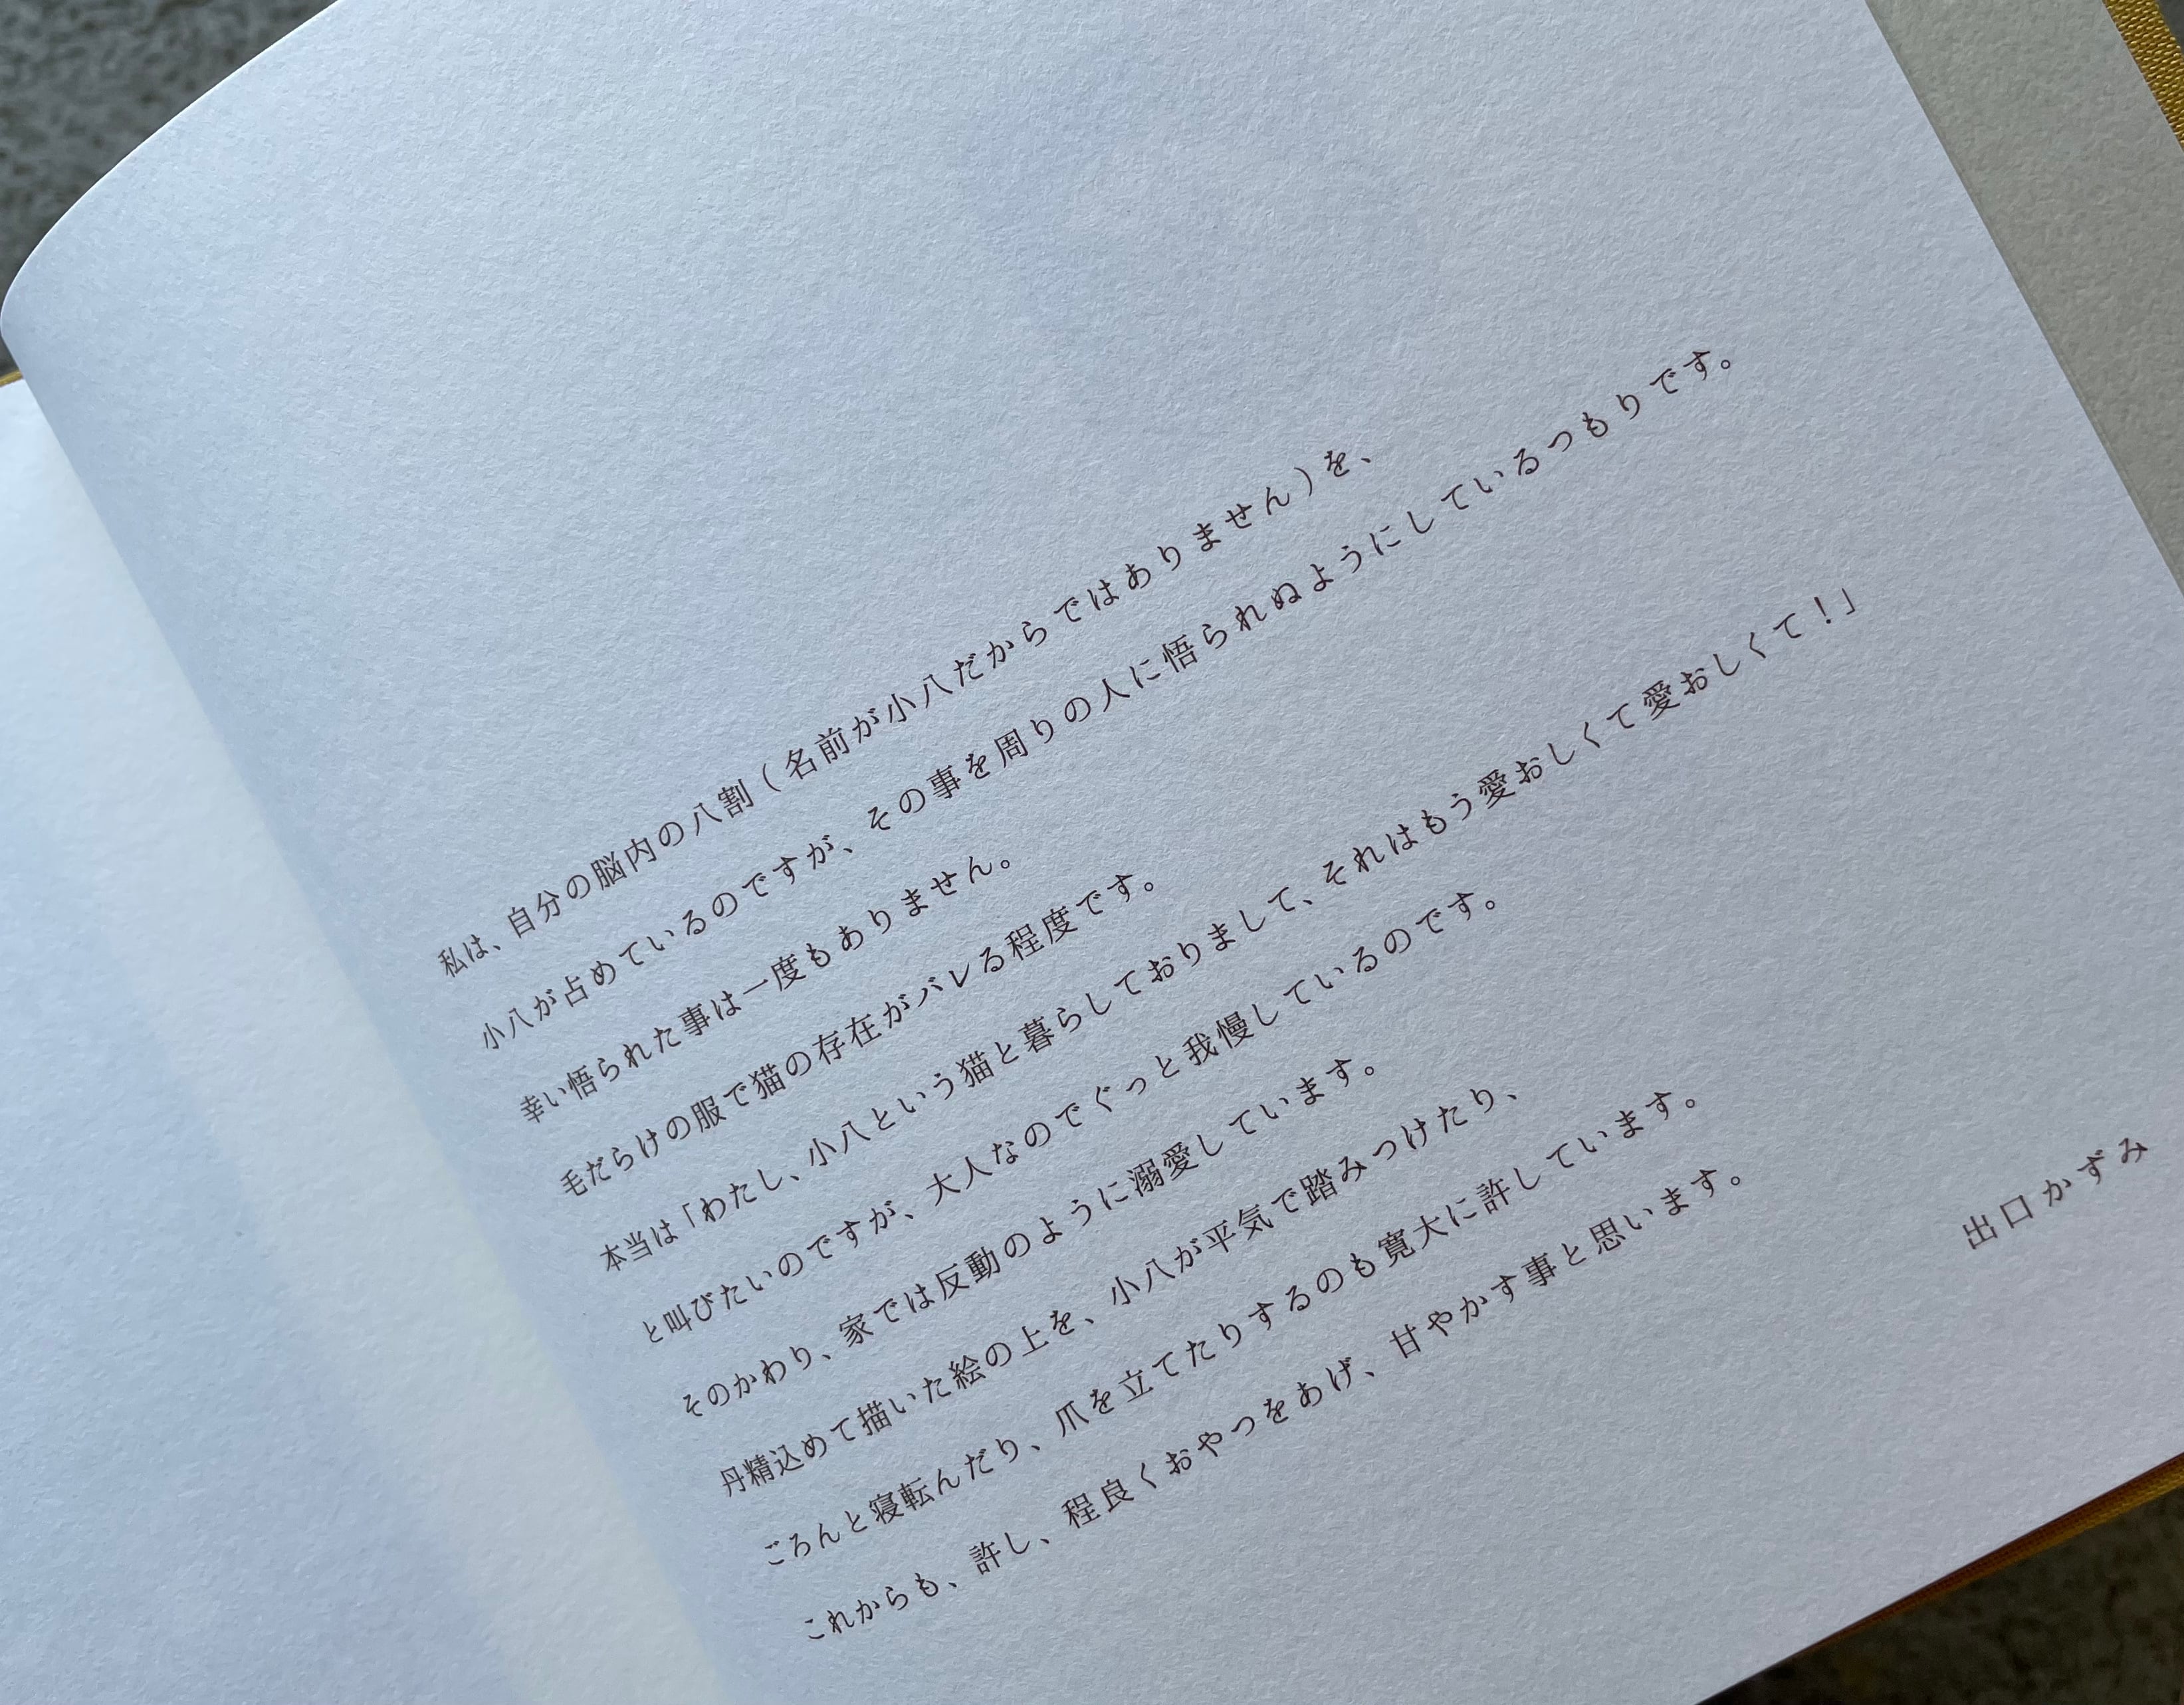 私は、自分の脳内の八割（名前が小八だからではありません）を、
小八が占めているのですが、その事を周りの人に悟られぬようにしているつもりです。
幸い悟られた事は一度もありません。
毛だらけの服で猫の存在がバレる程度です。
本当は「わたし、小八という猫と暮らしておりまして、それはもう愛おしくて愛おしくて！」
と叫びたいのですが、大人なのでぐっと我慢しているのです。
そのかわり、家では反動のように溺愛しています。
丹精込めて描いた絵の上を、小八が平気で踏みつけたり、
ごろんと寝転んだり、爪を立てたりするのも寛大に許しています。
これからも、許し、程良くおやつをあげ、甘やかす事と思います。
出口かずみ